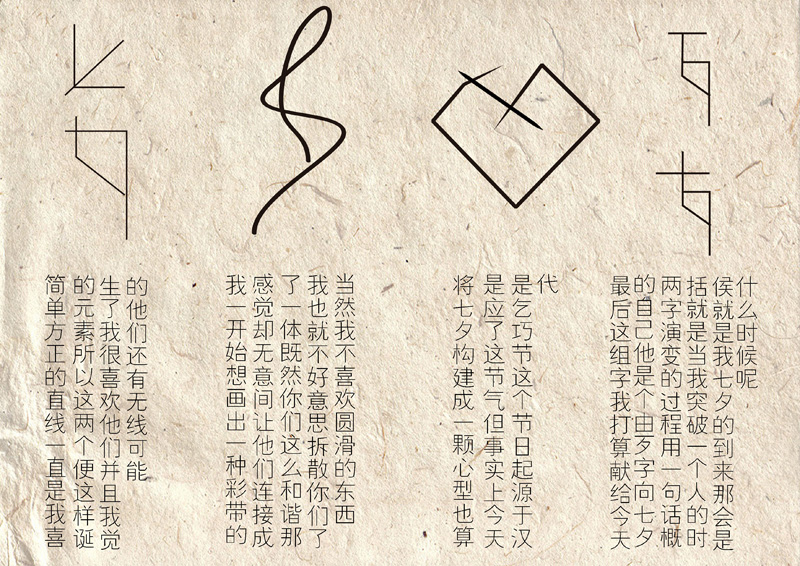 简单方正的直线一直是我喜
的元素所以这两个便这样诞
生了我很喜欢他们并且我觉
的他们还有无线可能
我一开始想画出一种彩带的
感觉却无意间让他们连接成
了一体既然你们这么和谐那
我也就不好意思拆散你们了
当然我不喜欢圆滑的东西
将七夕构建成一颗心型也算
是应了这节气但事实上今天
是乞巧节这个节日起源于汉
代
最后这组字我打算献给今天
的自己他是个由歹字向七夕
两字演变的过程用一句话概
括就是当我突破一个人的时
侯就是我七夕的到来那会是
什么时候呢